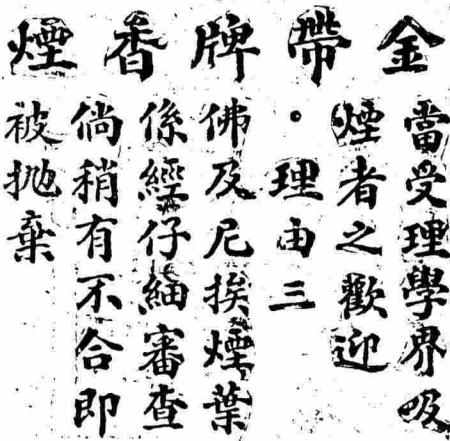 金帶牌香煙
當受理學界吸
煙者之歡迎
。理由三
佛及尼挨煙葉
係經仔細審查
倘稍有不合即
被拋棄